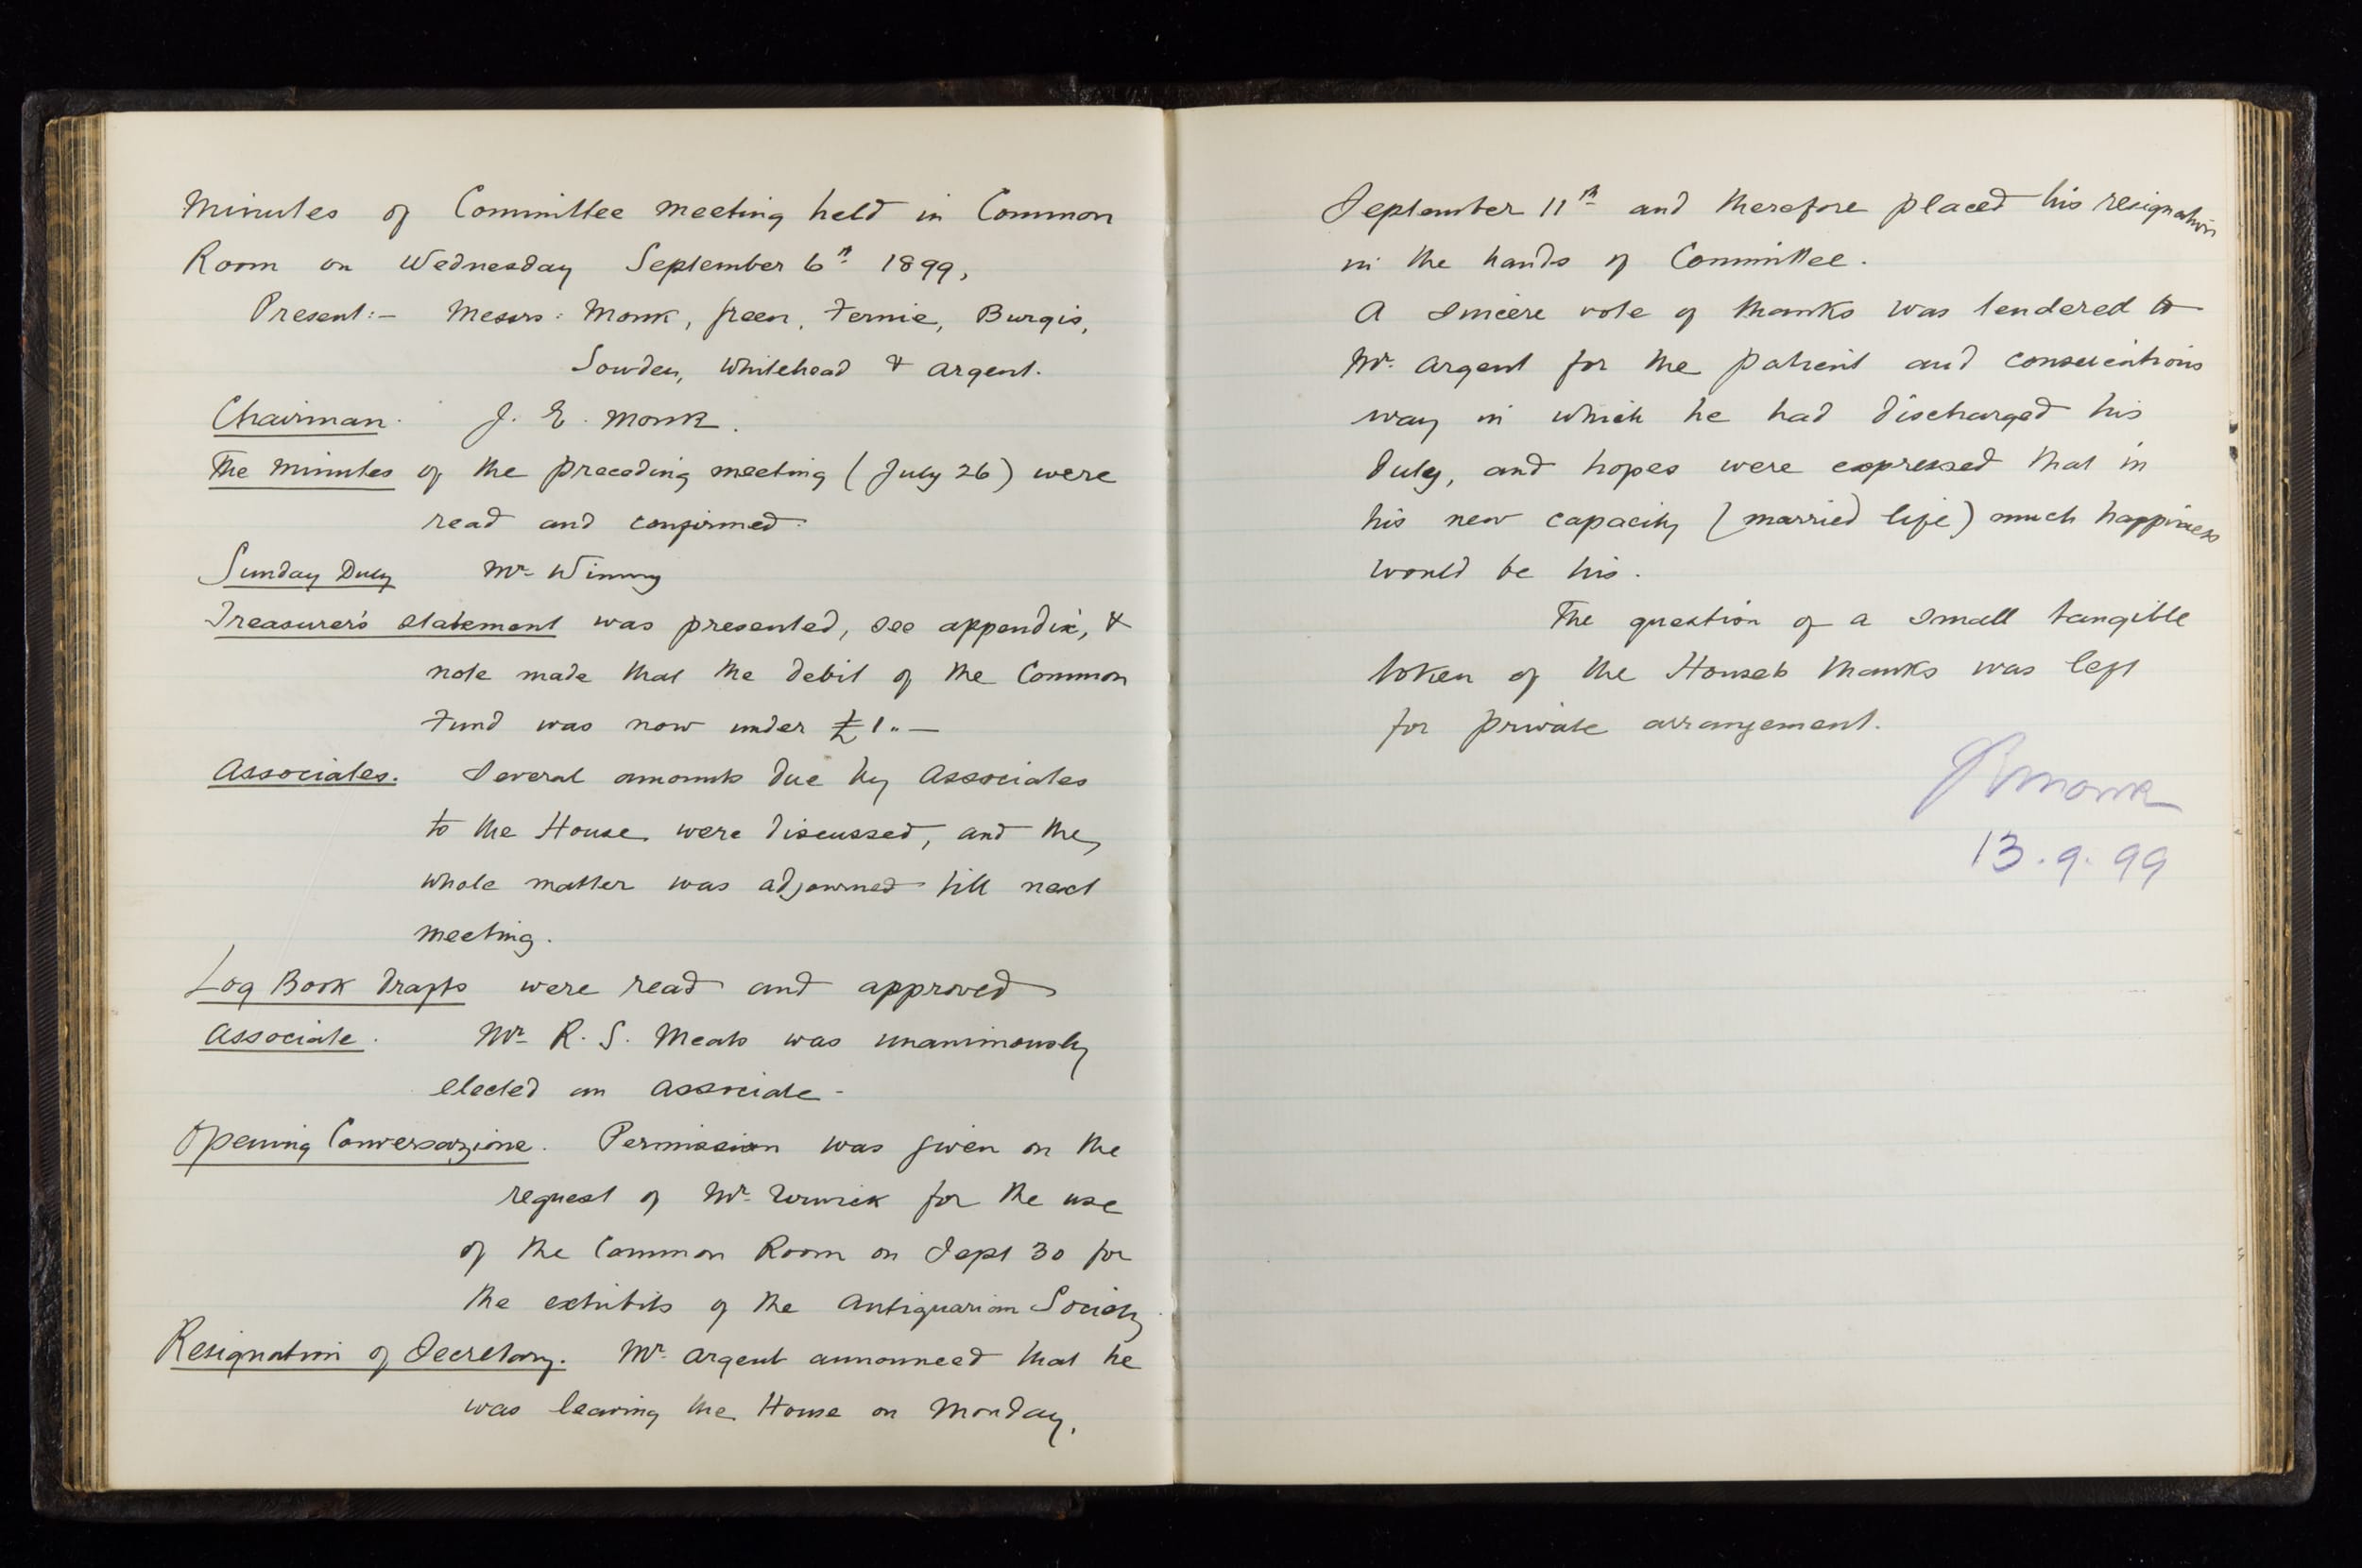 Minutes of Committee meeting held in Common
Room on Wednesday September 6th 1899,
Present:— Messrs: Monk, Green, Fernie, Burgis,
Sowden, Whitehead & Argent.
Chairman. J. E. Monk.
The Minutes of the preceding meeting (July 26) were
read and confirmed.
Sunday Duty Mr Winny
Treasurer's statement was presented, see appendix, &
note made that the debit of the Common
Fund was now under £1"—
Associates. Several amounts due by Associates
to the House were discussed, and the
whole matter was adjourned till next
meeting.
Log Book Drafts were read and approved
Associate. Mr R. S. Meats was unanimously
elected an associate -
Opening Conversazione. Permission was given on the
request of Mr for the use
of the Common Room on Sept 30 for
the exhibits of the Antiquarian Society.
Resignation of Secretary. Mr Argent announced that he
was leaving the House on Monday,
September 11th and therefore placed his resignation
in the hands of Committee.
A sincere vote of thanks was tendered to
Mr Argent for the patient and conscientious
way in which he had discharged his
duty, and hopes were expressed that in
his new capacity (married life) much happiness
would be his.
The question of a small tangible
token of the House's thanks was left
for private arrangement.
J E Monk
13.9.99